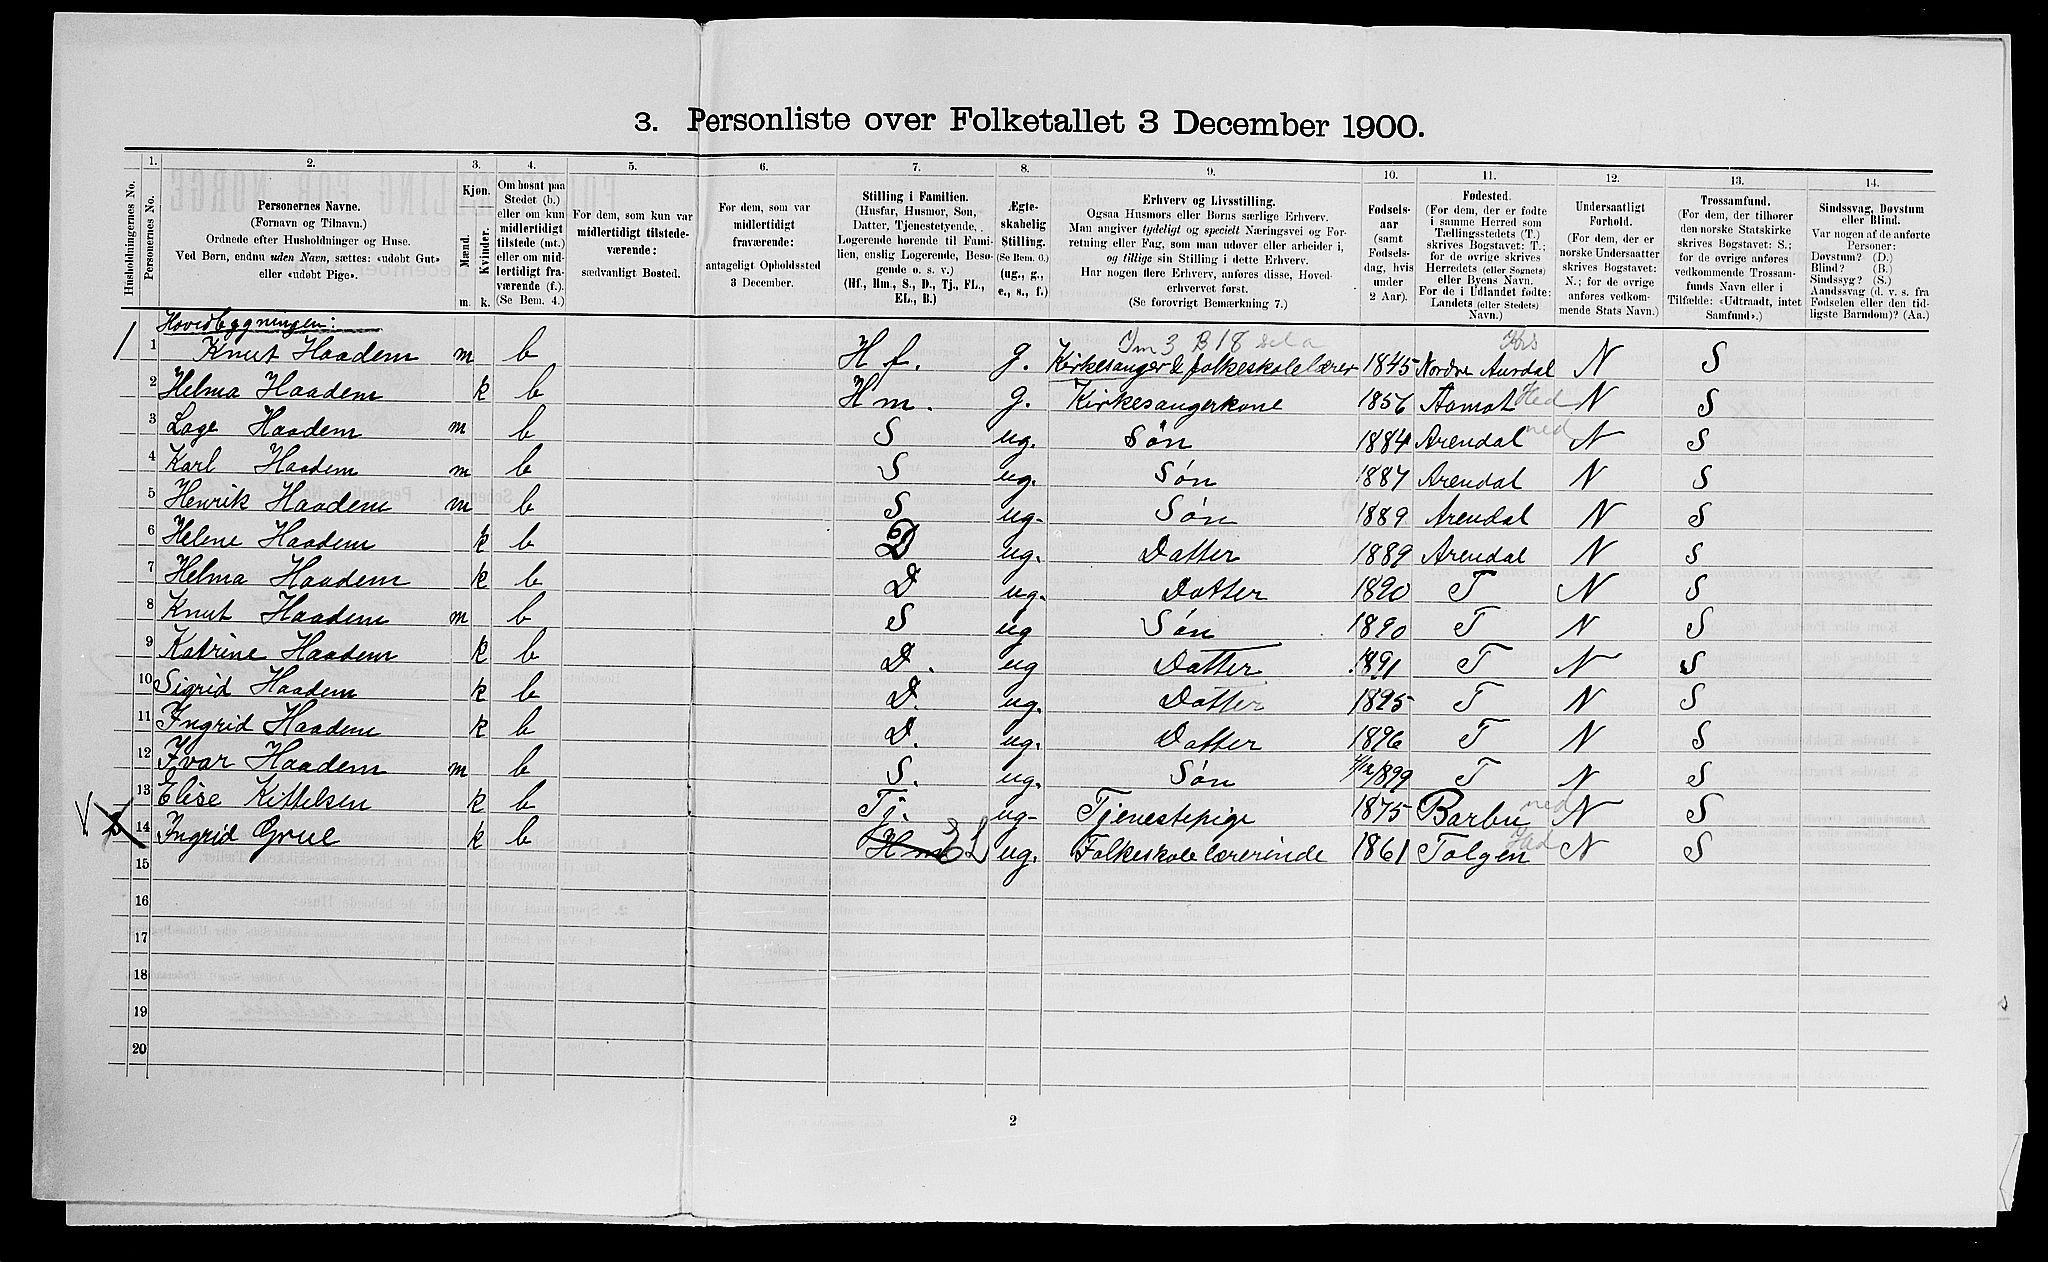 3. Personliste over Folketallet 3 December 1900.
Husholdningernes No.
1. Personernes No.
2. Personernes Navne.
(Fornavn og Tilnavn.)
Ordnede efter Husholdninger og Huse.
Ved Børn, endnu uden Navn, sættes: «udøbt Gut»
eller «udøbt Pige».
3. Kjøn.
Mænd. Kvinder.
m. k.
4. Om bosat paa
Stedet (b.)
eller om kun
midlertidigt
tilstede (mt.)
eller om mid-
lertidigt fra-
værende (f.).
(Se Bem. 4.)
5. For dem, som kun var
midlertidigt tilstede-
værende:
sædvanligt Bosted.
6. For dem, som var
midlertidigt
fraværende:
antageligt Opholdssted
3 December.
7. Stilling i Familien.
(Husfar, Husmor, Søn,
Datter, Tjenestetyende,
Logerende hørende til Fami-
lien, enslig Logerende, Besø-
gende o. s. v.)
(Hf., Hm., S., D., Tj., FL.,
EL., B.)
8. Ægte-
skabelig
Stilling.
(Se Bem. 6.)
(ug., g.,
e., s., f.)
9. Erhverv og Livsstilling.
Ogsaa Husmors eller Børns særlige Erhverv.
Man angiver tydeligt og specielt Næringsvei og For-
retning eller Fag, som man udøver eller arbeider i,
og tillige sin Stilling i dette Erhverv.
Har nogen flere Erhverv, anføres disse, Hoved-
erhvervet først.
(Se forøvrigt Bemærkning 7.)
10. Fødsels-
aar
(samt
Fødsels-
dag, hvis
under
2 Aar).
11. Fødested.
(For dem, der er fødte
i samme Herred som
Tællingsstedets (T.)
skrives Bogstavet: T.;
for de øvrige skrives
Herredets (eller Sognets)
eller Byens Navn.
For de i Udlandet fødte:
Landets (eller Stedets)
Navn.)
12. Undersaatligt
Forhold.
(For dem, der er
norske Undersaatter
skrives Bogstavet:
N.; for de øvrige
anføres vedkom-
mende Stats Navn.)
13. Trossamfund.
(For dem, der tilhører
den norske Statskirke
skrives Bogstavet: S.;
for de øvrige anføres
vedkommende Trossam-
funds Navn eller i
Tilfælde: «Udtraadt, intet
Samfund».)
14. Sindssvag, Døvstum
eller Blind.
Var nogen af de anførte
Personer:
Døvstum? (D.)
Blind? (B.)
Sindssyg? (S.)
Aandssvag (d. v. s. fra
Fødselen eller den tid-
ligste Barndom)? (Aa.)
Hovedbygningen:
Im 3 B 18
1 1 Knut Haadem m b Hf. g. Kirkesanger & folkeskolelærer 1845 Nordre Aurdal Krs N S
2 Helma Haadem k b Hm. g. Kirkesangerkone 1856 Aamot Hed N S
3 Lage Haadem m b S ug. Søn 1884 Arendal ned N S
4 Karl Haadem m b S ug. Søn 1887 Arendal N S
5 Henrik Haadem m b S ug. Søn 1889 Arendal N S
6 Helene Haadem k b D ug. Datter 1889 Arendal N S
7 Helma Haadem k b D ug. Datter 1890 T N S
8 Knut Haadem m b S ug Søn 1890 T N S
9 Katrine Haadem k b D. ug Datter 1891 T N S
10 Sigrid Haadem k b D. ug. Datter 1895 T N S
11 Ingrid Haadem k b D. ug. Datter 1896 T N S
12 Ivar Haadem m b S. ug. Søn 1/12 1899 T N S
13 Elise Kittelsen k b Tj. ug. Tjenestepige 1875 Barbu ned N S
V 2 14 Ingrid Grue k b Hm EL ug. Folkeskolelærerinde 1861 Tolgen Hed N S
15
16
17
18
19
20
2